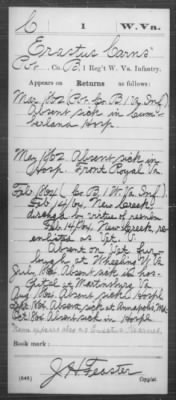 C 1 W. Va.
Erastus Carns
Pvt., Co. B, 1 Reg't W. Va. Infantry.
Appears on
Returns as follows:
Mar 1862 Pvt. Co. B 1 Va Inf.
Absent sick in Cum-
berland Hosp.
May 1862 Absent sick in
Hosp. Front Royal Va.
Feb. 1864 (Co. B 1 W. Va. Inf.)
Feb 14/64, New Creek
by virtue of reen
Feb. 14/64, New Creek, re-
enlisted as Vet. V.
Absent on Vet. fur-
lough at Wheeling W. Va
July 1864 Absent sick in hos-
pital at Martinsburg Va
Aug 1864 Absent sick Hospl
Absent, sick at Annapolis, Md.
Oct. 1864 Absent sick in Hospl
Name appears also as Erastus
Book mark:
J. H. Feaster
(546) Copyist.